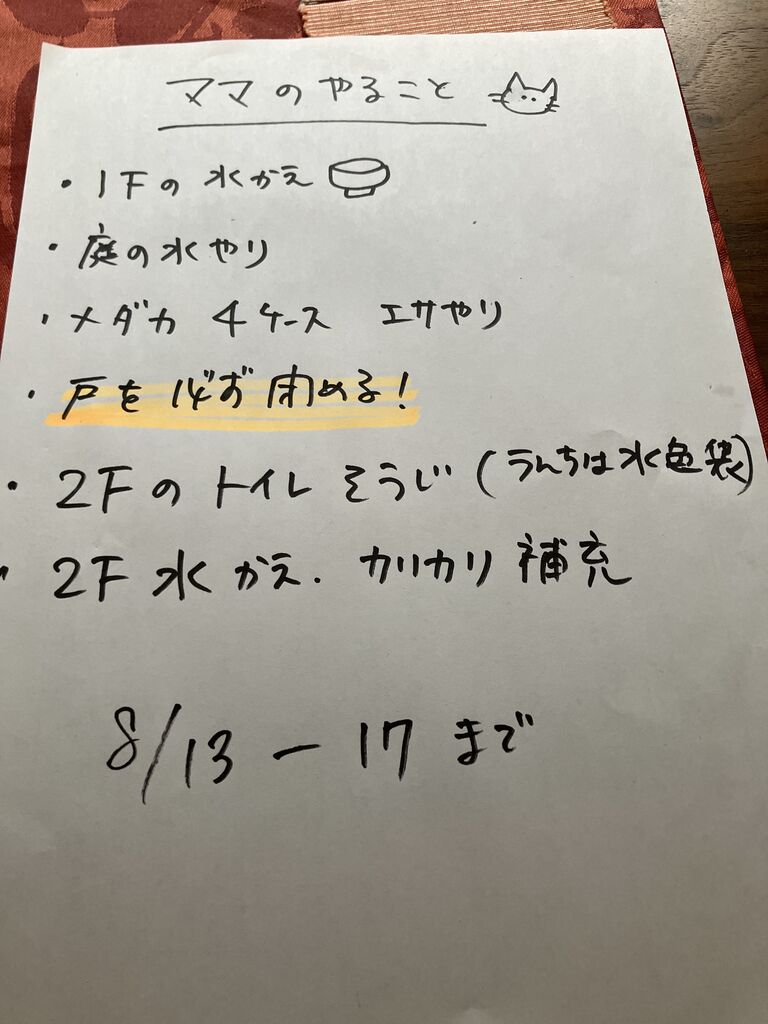 ママのやること
・1Fの水かえ
・庭の水やり
・メダカ 4ケース エサやり
・戸を必ず閉める!
・2Fのトイレそうじ(うんちは水色袋)
・2F水かえ.カリカリ補充
8/13-17まで